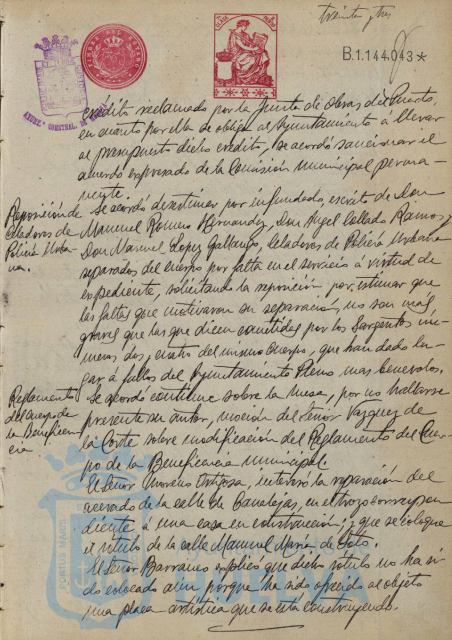 treinta y tres
B.1.144.043*
crédito reclamado por la Junta de Obras del Puerto,
en cuanto por ella se obliga al Ayuntamiento á llevar
al presupuesto dicho crédito, se acordó sancionar el
acuerdo expresado de la Comisión Municipal perma-
nente.
Reposición de
Celadores de
Policía Urba-
na.
Se acordó desestimar por infundado, escrito de Don
Manuel Romero Hernandez, Don Angel Collado Ramos y
Don Manuel Lopez Gallango, Celadores de Policía Urbana
separados del cuerpo por falta en el servicio á virtud de
expediente, solicitando la reposición por estimar que
las faltas que motivaron su separación, no son más
graves que las que dicen cometidas por los Sargentos nú-
meros dos y cuatro del mismo Cuerpo, que han dado lu-
gar á fallos del Ayuntamiento Pleno mas benevolos.
Reglamento
del cuerpo de
la Beneficen-
cia
Se acordó continue sobre la mesa, por no hallarse
presente su autor, moción del Señor Vazquez de
la Corte sobre modificación del Reglamento del Cuer-
po de la Beneficencia municipal.
El Señor Moreno Ortega, interesó la reparación del
acerado de la calle de Canalejas, en el trozo correspon
diente á una casa en construcción; y que se coloque
el rótulo de la calle Manuel Maria de Soto.
El Señor Barranco explicó que dicho rótulo no ha si
do colocado aun porque ha sido ofrecido al objeto
una placa artística que se está construyendo.